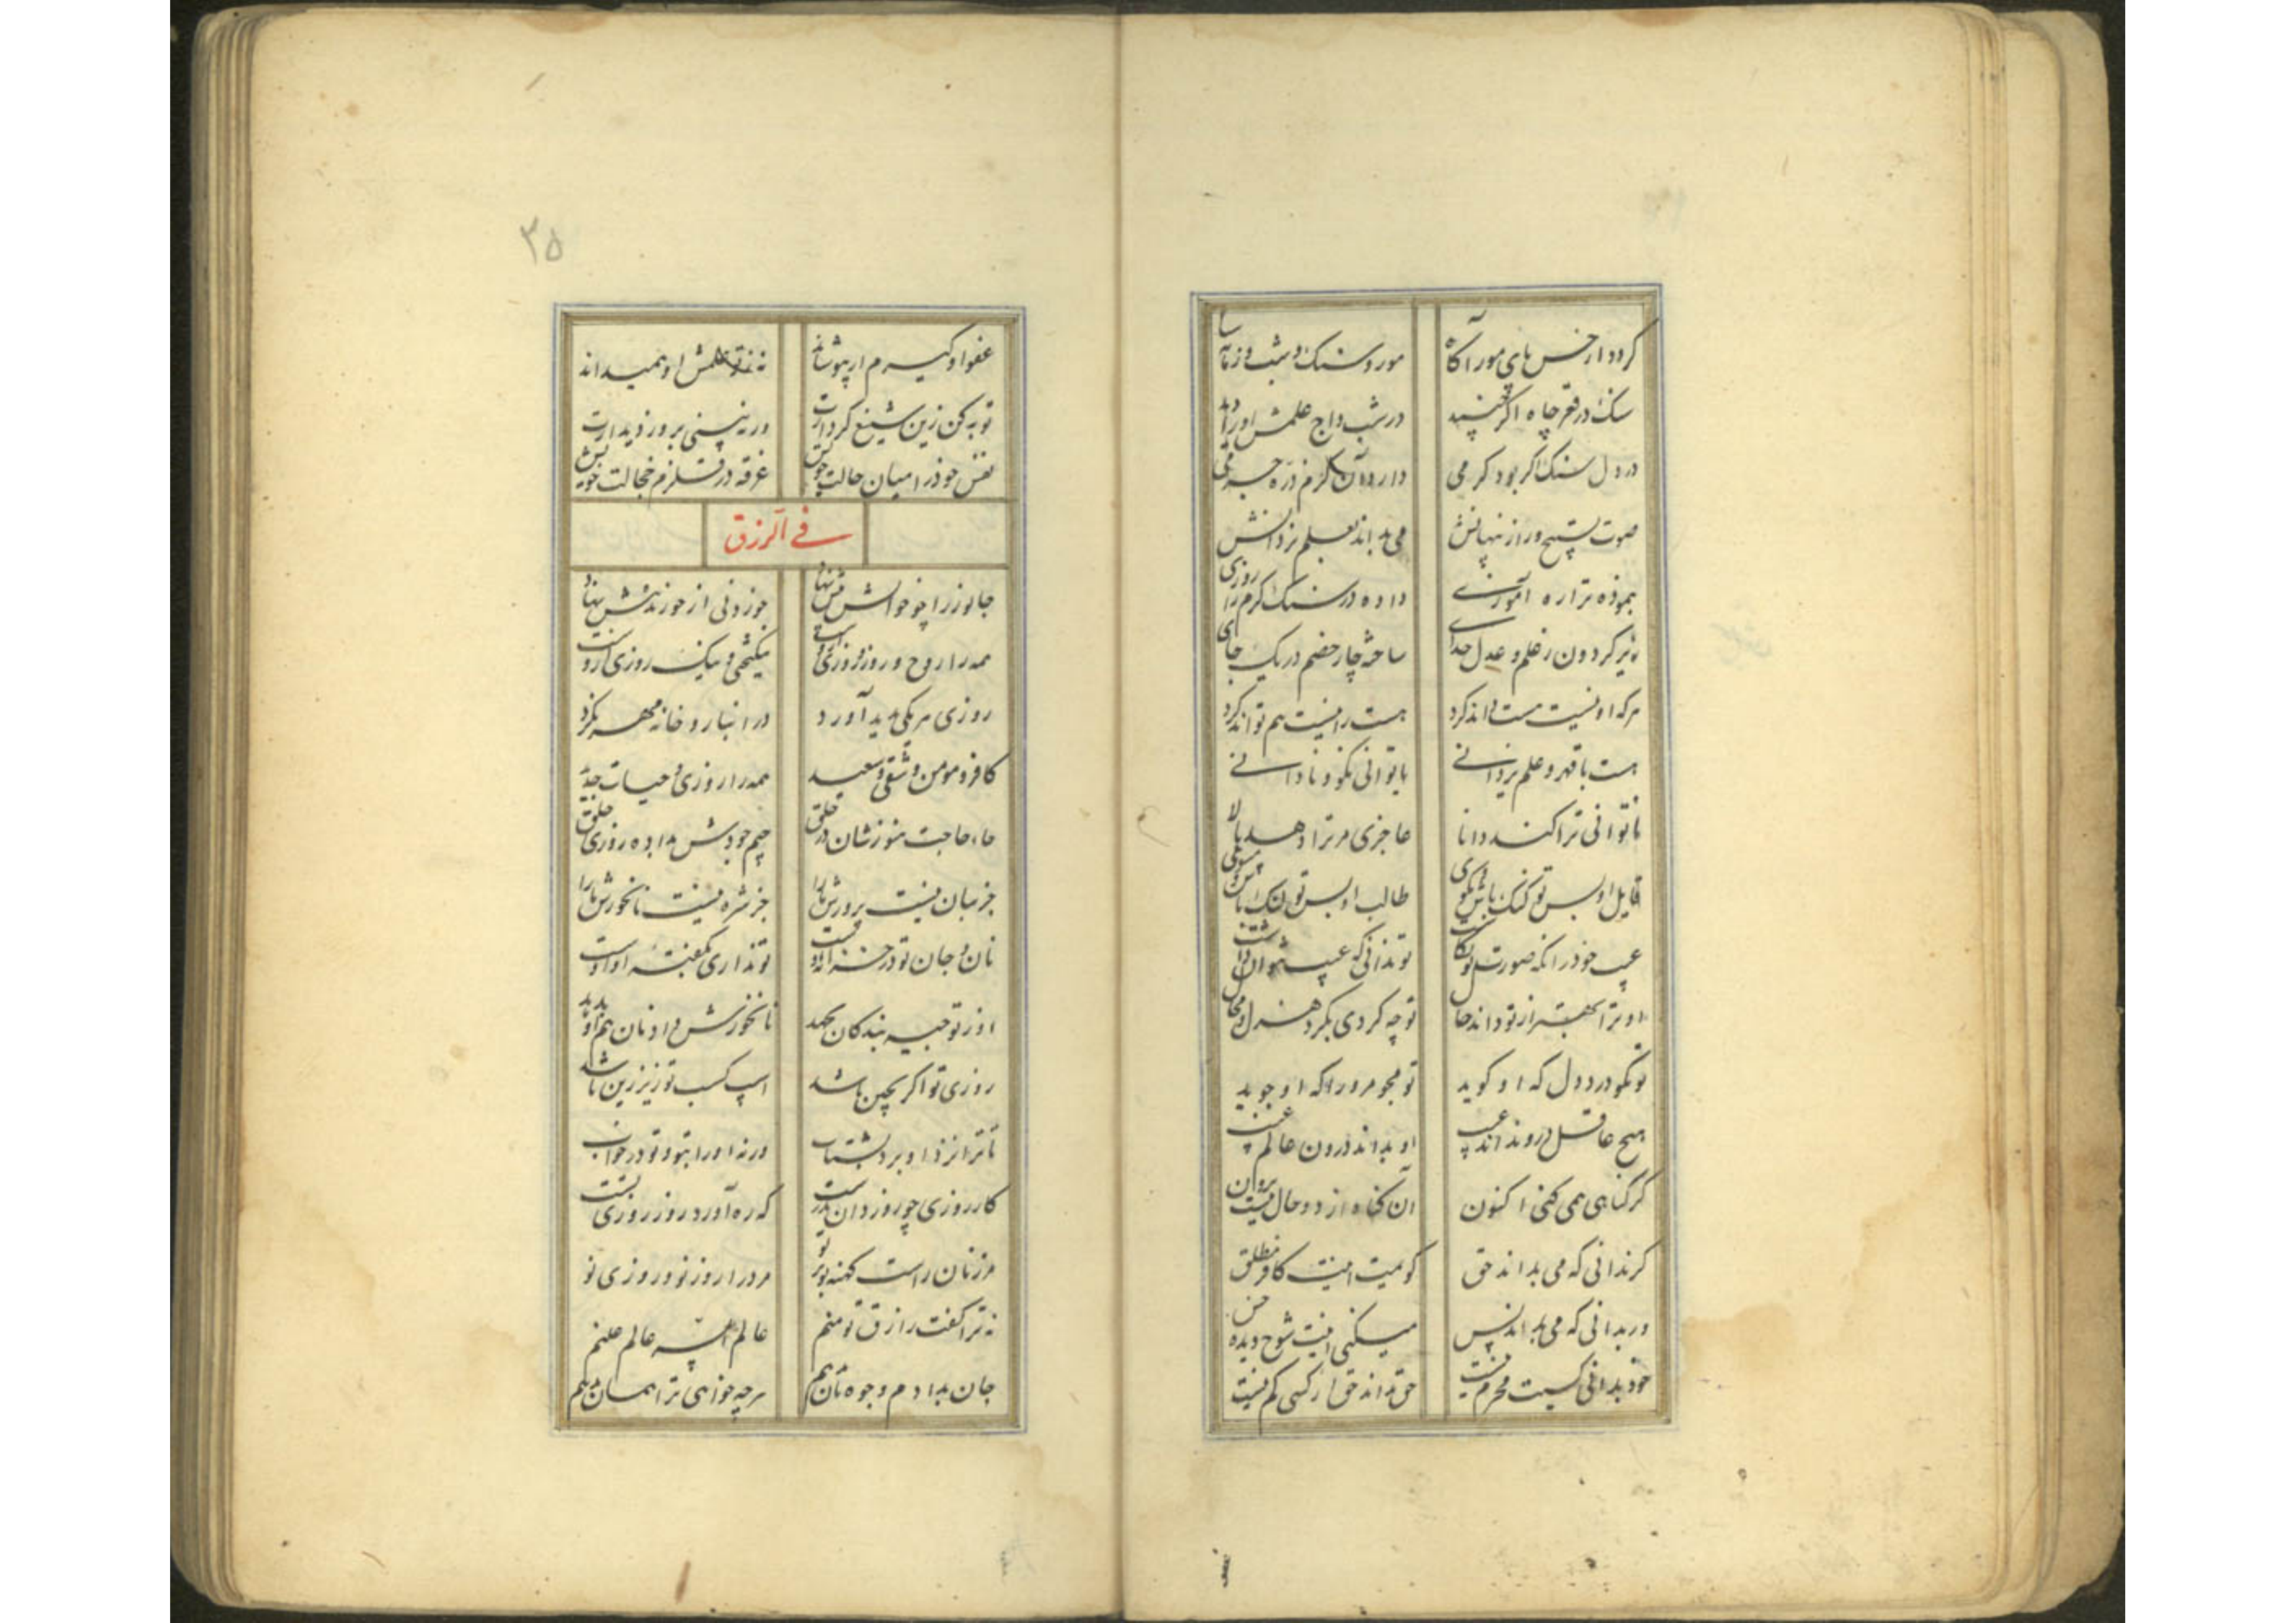 کردد از حس پای مور آکاه
مور و سنک و شب و زمانه سیاه
سنک در قعر چاه اکر جنبید
در شب داج علمش او را دید
در دل سنک اکر بود کرمی
دارد آن کرم ذره جرمی
صوت تسبیح و راز پنهانش
می بداند بعلم یزدانش
بنموده ترا ره آموزی
داده در سنک کرم را روزی
هرکه او نیست هست داند کرد
هست را نیست هم تواند کرد
هست با قهر و علم یزدانی
ناتوانی نکو و نادانی
ناتوانی ترا کند دانا
عاجزی مر ترا دهد بالا
قایل او بس تو کنک باش مکوی
طالب او بس تو لنک باش مپوی
عیب خود را نکه صورت نکاشت
تو ندانی که عیب نتوان داشت
او ترا بهتر از تو داند حال
تو چه کردی بکرد هزل و محال
تو مکو درد دل که او کوید
تو مجو مر ورا که او جوید
هیچ عاقل درو نداند عیب
او بداند درون عالم غیب
کر کناهی همی کنی اکنون
آن کناه از دو حال نیست برون
کر ندانی که می بداند حق
کویمت اینت کافر مطلق
ور بدانی که می بداند پس
میکنی اینت شوخ دیده خس
خود بدانی کسیت محرم نیست
حق بداند حق از کسی کم نیست
۳۵
عفو او کیرم ار بپوشاند
نه نه علمش او همیداند
توبه کن زین شنیع کردارت
ورنه بینی بروز دیدارت
نفس خود را میان حالت خویش
غرقه در قلزم خجالت خویش
فی الرزق
جانور را چو خوانش پیش نهاد
خوردنی از خورنده بیش نهاد
همه را روح و روز و روزی ازوست
نیکبختی و نیک روزی ازوست
روزی هر یکی پدید آورد
در انبار و خانه مهر نکرد
کافر و مومن و شقی و سعید
همه را روزی و حیات جدید
حاء حاجت هنوزشان در حلق
جیم جودش بداده روزی خلق
جز بنان نیست پرورش ما را
جز شره نیست نانخورش ما را
نان و جان تو در خزانه اوست
تو نداری کفیت او اوست
او ز توجیه بندکان بجهد
نانخورش داد نان هم او بدهد
روزی تو اکر بچین باشد
اسپ کسب تو زیر زین باشد
تا ترا نزد او برد بشتاب
ورنه او را بتو تو در خواب
کار روزی چو روز دان بدرست
که ره آورد روز روزی تست
مر زنان راست کهنه تو بر تو
مرد را روز نو و روزی نو
نه ترا کفت رازق تو منم
عالم السر عالم علنم
جان بدادم وجوه نان بدهم
هرچه خواهی ترا همان بدهم